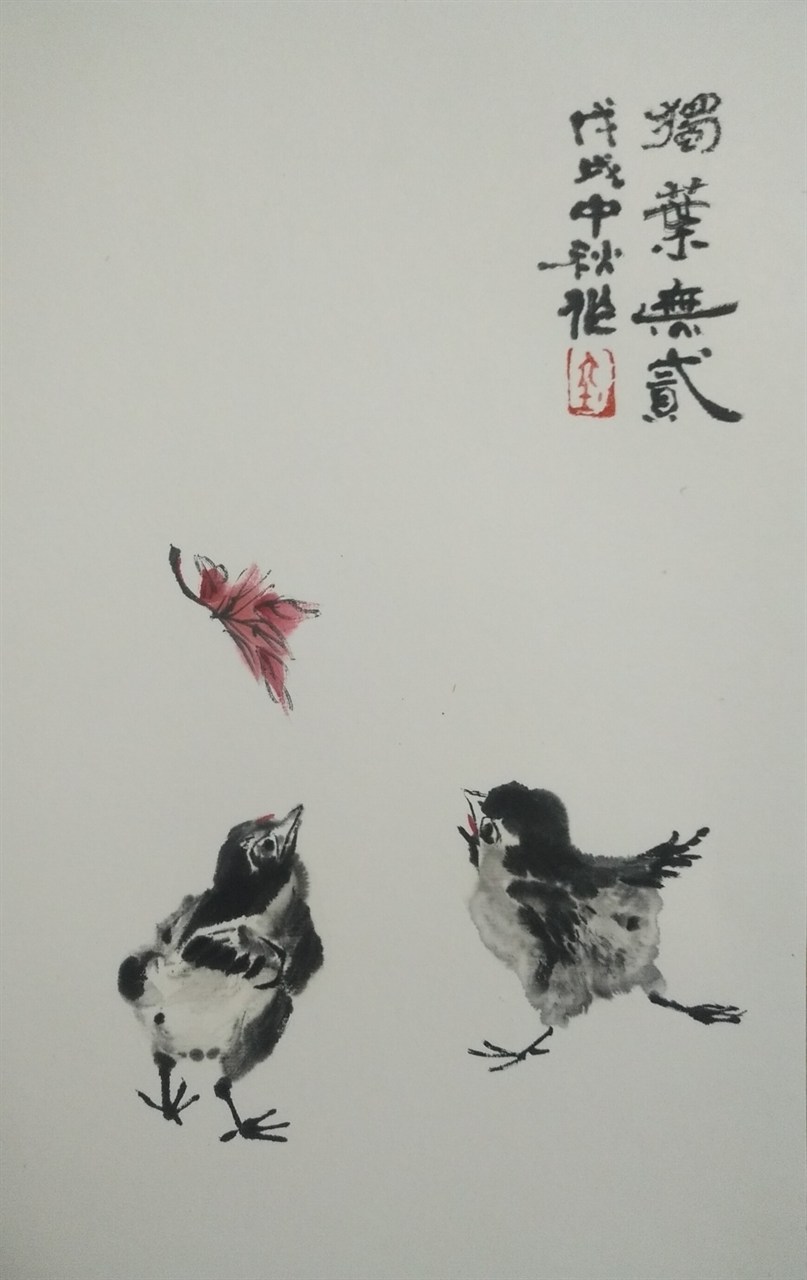 獨葉無貳
戊戌中秋作